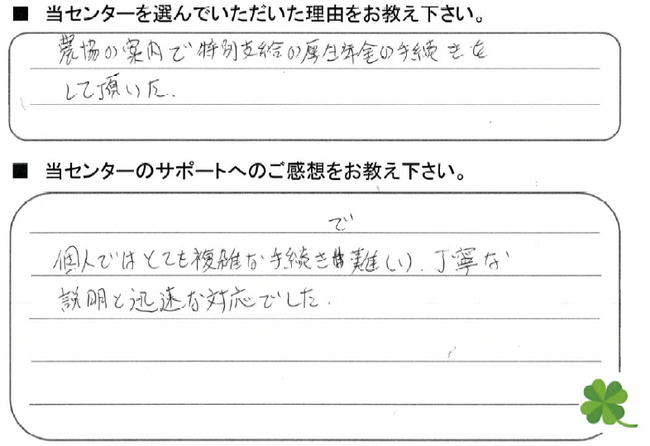 ■ 当センターを選んでいただいた理由をお教え下さい。
農協の案内で特別支給の厚生年金の手続きを
して頂いた.
■ 当センターのサポートへのご感想をお教え下さい。
で
個人ではとても複雑な手続き難しい. 丁寧な
説明と迅速な対応でした.